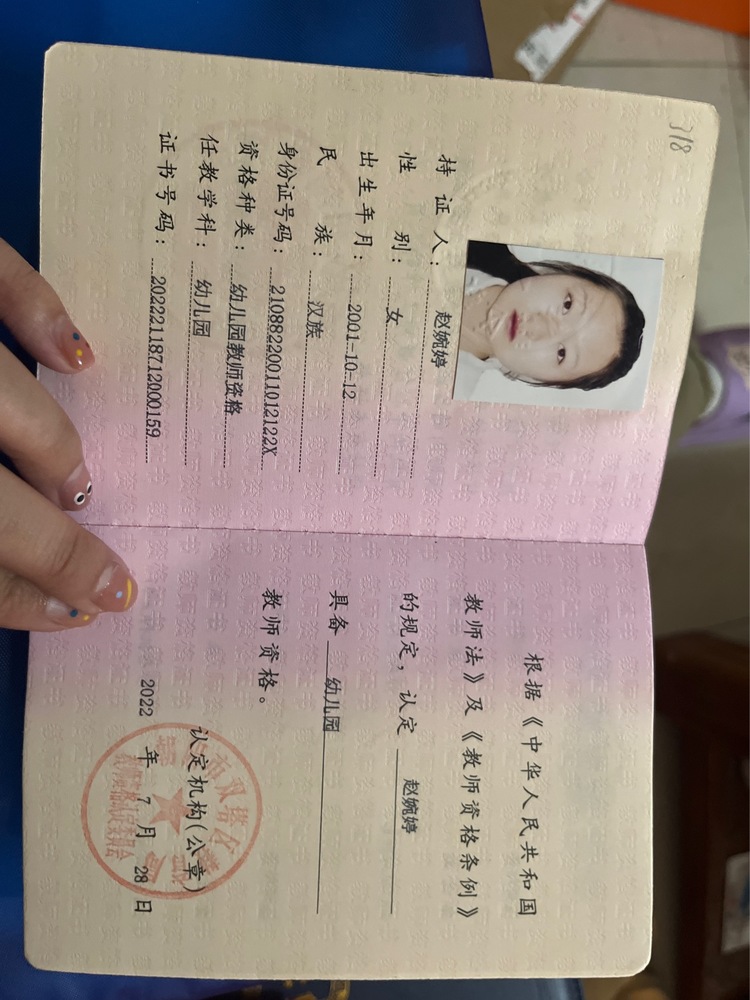 318
持证人：赵婉婷
性别：女
出生年月：2001-10-12
民族：汉族
身份证号码：21088220011012122X
资格种类：幼儿园教师资格
任教学科：幼儿园
证书号码：20222118712000159
根据《中华人民共和国
教师法》及《教师资格条例》
的规定，认定 赵婉婷
具备 幼儿园
教师资格。
认定机构(公章)
2022 年 7 月 28 日